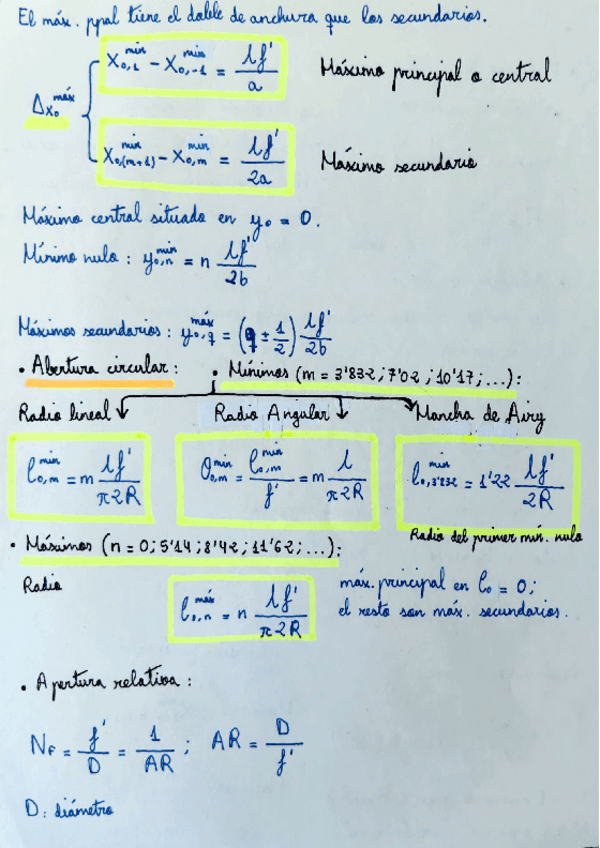 El máx. ppal tiene el doble de anchura que los secundarios.
Δx₀ᵐᵃˣ { x₀,₁ᵐⁱⁿ - x₀,₋₁ᵐⁱⁿ = λf'/a Máximo principal o central
x₀,(m+1)ᵐⁱⁿ - x₀,mᵐⁱⁿ = λf'/2a Máximo secundario
Máximo central situado en y₀ = 0.
Mínimo nulo: y₀,nᵐⁱⁿ = n λf'/2b
Máximos secundarios: y₀,qᵐᵃˣ = (q ± 1/2) λf'/2b
• Abertura circular: • Mínimos (m = 3'832; 7'02; 10'17; ...):
Radio lineal Radio Angular Mancha de Airy
ρ₀,mᵐⁱⁿ = m λf'/π2R θ₀,mᵐⁱⁿ = ρ₀,mᵐⁱⁿ/f' = m λ/π2R ρ₀,₃'₈₃₂ᵐⁱⁿ = 1'22 λf'/2R
Radio del primer mín. nulo
• Máximos (n = 0; 5'14; 8'42; 11'62; ...):
Radio ρ₀,nᵐᵃˣ = n λf'/π2R máx. principal en ρ₀ = 0;
el resto son máx. secundarios.
• Apertura relativa:
N_F = f'/D = 1/AR ; AR = D/f'
D: diámetro